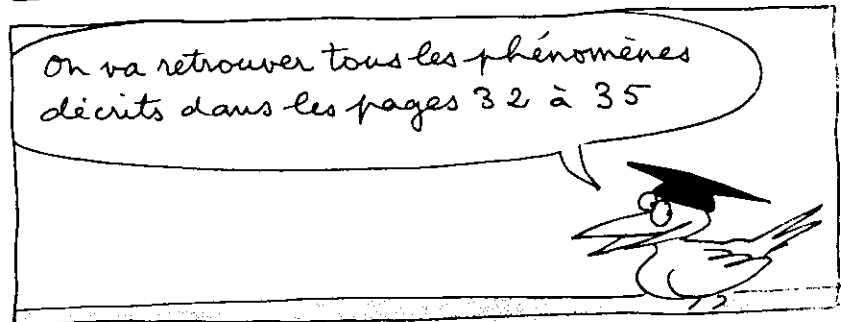 On va retrouver tous les phénomènes
décrits dans les pages 32 à 35